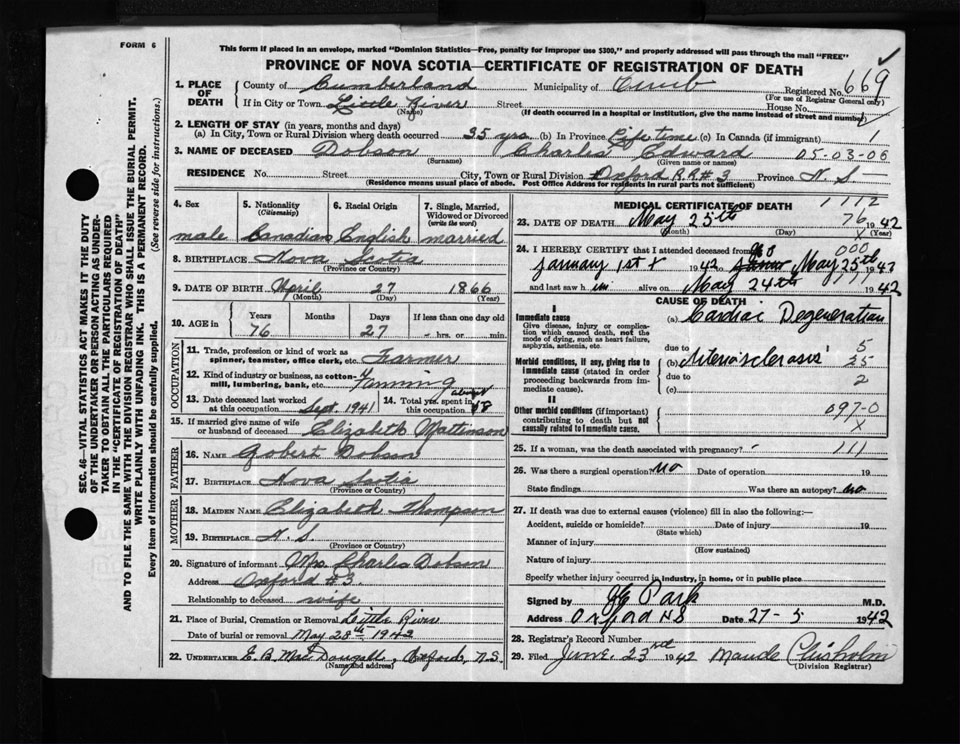 FORM 6
This form if placed in an envelope, marked "Dominion Statistics—Free, penalty for improper use $300," and properly addressed will pass through the mail "FREE"
PROVINCE OF NOVA SCOTIA—CERTIFICATE OF REGISTRATION OF DEATH
1. PLACE OF DEATH County of Cumberland Municipality of Cumb Registered No. 669
(For use of Registrar General only)
If in City or Town Little River Street House No.
(Name) (If death occurred in a hospital or institution, give the name instead of street and number)
2. LENGTH OF STAY (in years, months and days)
(a) In City, Town or Rural Division where death occurred 35 yrs. (b) In Province Life time (c) In Canada (if immigrant) 1
3. NAME OF DECEASED Dobson Charles Edward 05-03-06
(Surname) (Given name or names)
RESIDENCE No. Street City, Town or Rural Division Oxford R.R # 3 Province N. S—
(Residence means usual place of abode. Post Office Address for residents in rural parts not sufficient)
4. Sex 5. Nationality (Citizenship) 6. Racial Origin 7. Single, Married, Widowed or Divorced (write the word)
male Canadian English married
8. BIRTHPLACE Nova Scotia
(Province or Country)
9. DATE OF BIRTH April 27 1866
(Month) (Day) (Year)
10. AGE in Years Months Days If less than one day old
76 27 hrs. or min.
OCCUPATION
11. Trade, profession or kind of work as spinner, teamster, office clerk, etc. Farmer
12. Kind of industry or business, as cotton-mill, lumbering, bank, etc. Farming
13. Date deceased last worked at this occupation Sept. 1941 14. Total yrs. spent in this occupation about 58
15. If married give name of wife or husband of deceased Elizabeth Mattinson
FATHER
16. NAME Robert Dobson
17. BIRTHPLACE Nova Scotia
(Province or Country)
MOTHER
18. MAIDEN NAME Elizabeth Thompson
19. BIRTHPLACE N. S.
(Province or Country)
20. Signature of informant Mrs. Charles Dobson
Address Oxford #3.
Relationship to deceased wife
21. Place of Burial, Cremation or Removal Little River
Date of burial or removal May 28th 1942
22. UNDERTAKER E. B. MacDougall, Oxford, N.S.
(Name and address)
MEDICAL CERTIFICATE OF DEATH 1112
23. DATE OF DEATH May 25th 76 1942
(Month) (Day) x (Year)
24. I HEREBY CERTIFY that I attended deceased from 000
January 1st 1942 to May 25th 1942
and last saw h im alive on May 24th 1942
CAUSE OF DEATH
I
Immediate cause
Give disease, injury or complication which caused death, not the mode of dying, such as heart failure, asphyxia, asthenia, etc.
(a) Cardiac Degeneration
due to 5
Morbid conditions, if any, giving rise to immediate cause (stated in order proceeding backwards from immediate cause).
(b) Arteriosclerosis 35
due to 2
(c)
II
Other morbid conditions (if important) contributing to death but not causally related to immediate cause.
097-0
x
25. If a woman, was the death associated with pregnancy? 111
26. Was there a surgical operation? no Date of operation 19
State findings Was there an autopsy? no
27. If death was due to external causes (violence) fill in also the following:—
Accident, suicide or homicide? Date of injury 19
(State which)
Manner of injury
(How sustained)
Nature of injury
Specify whether injury occurred in industry, in home, or in public place
Signed by Park M.D.
Address Oxford NS Date 27-5 1942
28. Registrar's Record Number
29. Filed June 23rd 1942 Maude Chisholm
(Division Registrar)
SEC. 46—VITAL STATISTICS ACT MAKES IT THE DUTY
OF THE UNDERTAKER OR PERSON ACTING AS UNDER-
TAKER TO OBTAIN ALL THE PARTICULARS REQUIRED
IN THE "CERTIFICATE OF REGISTRATION OF DEATH"
AND TO FILE THE SAME WITH THE DIVISION REGISTRAR WHO SHALL ISSUE THE BURIAL PERMIT.
WRITE PLAINLY WITH UNFADING INK. THIS IS A PERMANENT RECORD.
Every item of information should be carefully supplied. (See reverse side for instructions.)